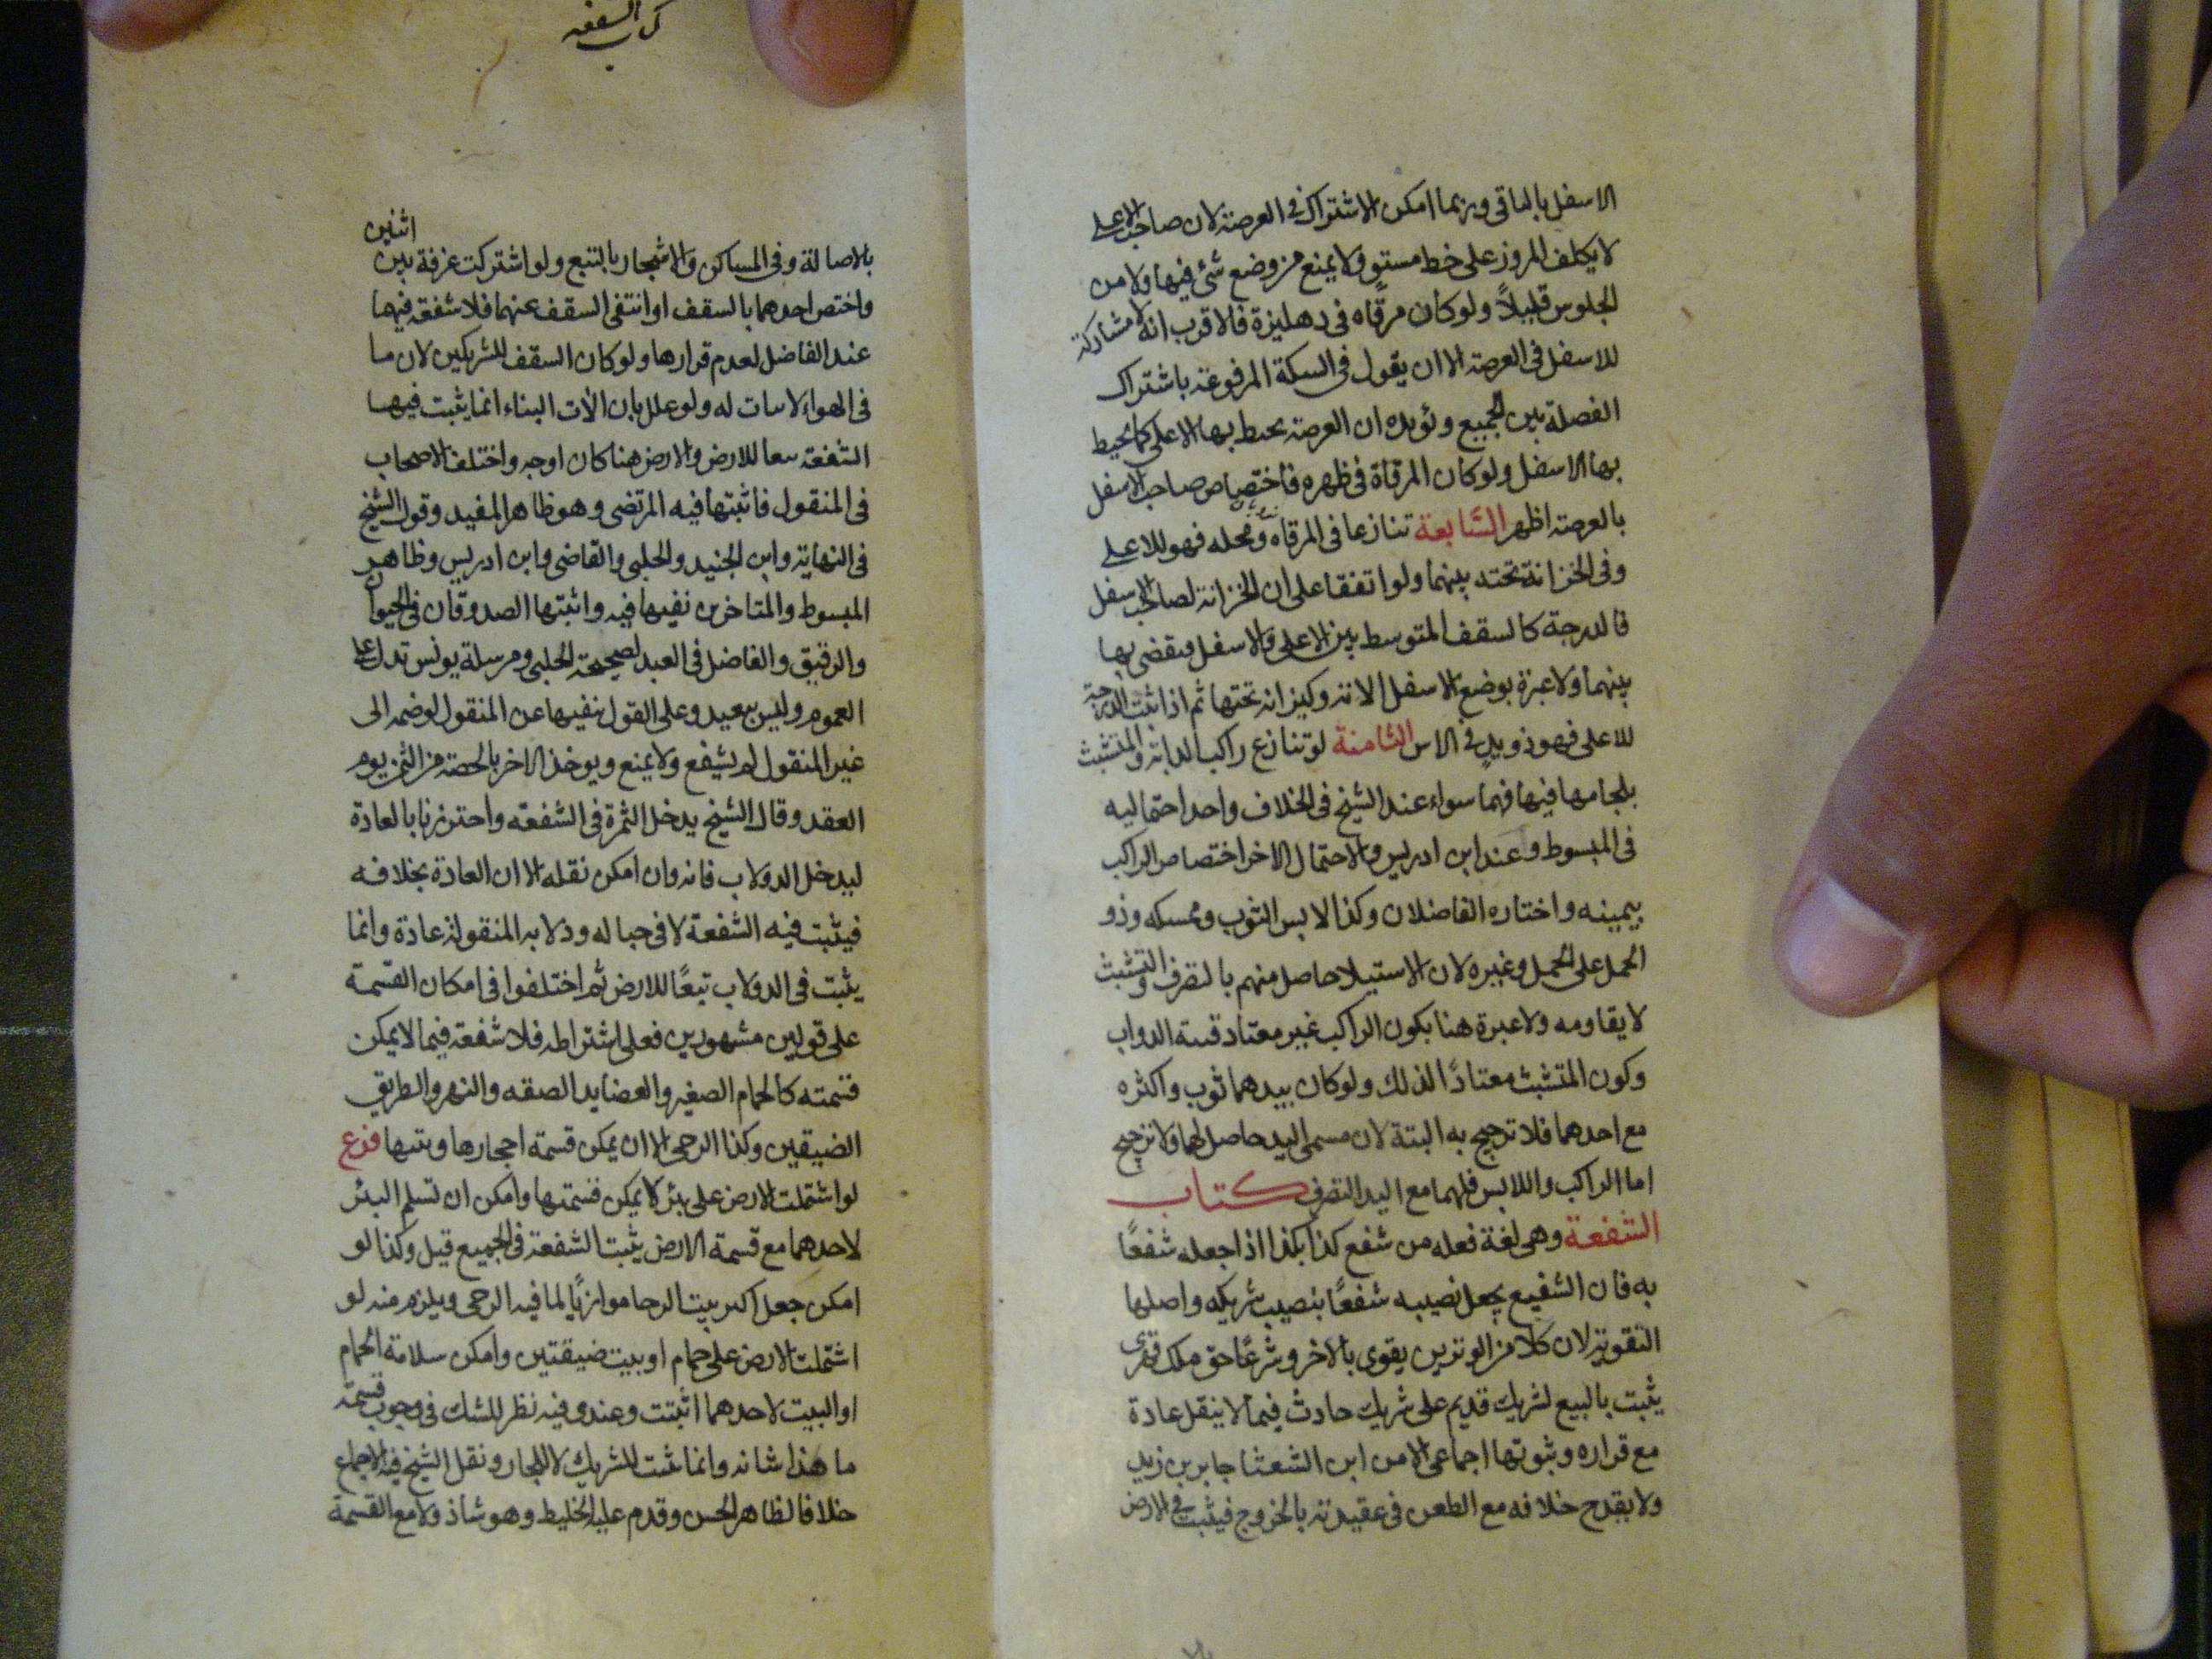 الاسفل بالباقى وربما امكن الاشتراك فى العرصة لان صاحب الاعلى
لا يكلف المرور على خط مستو ولا يمنع من وضع شئ فيها ولا من
الجلوس قليلاً ولو كان مرقاه فى دهليزه فالاقرب انه لا مشاركة
للاسفل فى العرصة الا ان يقول فى السكة المرفوعة باشتراك
الفصلة بين الجميع ويؤيده ان العرصة يحيط بها الاعلى كما يحيط
بها الاسفل ولو كان المرقاة فى ظهره فاختصاص صاحب الاسفل
بالعرصة اظهر السابعة تنازعا فى المرقاه ومحله فهو للاعلى
وفى الخزانة تحته بينهما ولو اتفقا على ان الخزانة لصاحب الاسفل
فالدرجة كالسقف المتوسط بين الاعلى والاسفل فيقضى بها
بينهما ولا عبرة بوضع الاسفل الاته وكيزانه تحتها ثم اذا ثبت الدرجة
للاعلى فهو ذو يد فى الاس الثامنة لو تنازع راكب الدابة والمتشبث
بلجامها فيها فهما سواء عند الشيخ فى الخلاف واحد احتماليه
فى المبسوط وعند ابن ادريس والاحتمال الاخر اختصاص الراكب
بيمينه واختاره الفاضلان وكذا لابس الثوب وممسكه وذو
الحمل على الحمل وغيره لان الاستيلا حاصل منهم بالتصرف والتشبث
لا يقاومه ولا عبرة هنا بكون الراكب غير معتاد قنية الدواب
وكون المتشبث معتادًا لذلك ولو كان بيدهما ثوب واكثره
مع احدهما فلا ترجيح به البتة لان مسمى اليد حاصل لهما ولا ترجيح
اما الراكب واللابس فلهما مع اليد التصرف كتاب
الشفعة وهى لغة فعله من شفع كذا بكذا اذا جعله شفعًا
به فان الشفيع يجعل نصيبه شفعًا بنصيب شريكه واصلها
التقوية لان كلا من الوترين يقوى بالاخر وشرعًا حق ملك قهرى
يثبت بالبيع لشريك قديم على شريك حادث فيما لا ينقل عادة
مع قراره وثبوتها اجماعى الا من ابن الشعثا جابر بن زيد
ولا يقدح خلافه مع الطعن فى عقيدته بالخروج فيثبت فى الارض
كتاب الشفعه
اثنين
بالاصالة وفى المساكن والاشجار بالتبع ولو اشتركت غرفة بين
واختص احدهما بالسقف او انتفى السقف عنهما فلا شفعة فيها
عند الفاضل لعدم قرارها ولو كان السقف للشريكين لان ما
فى الهواء لا ثبات له ولو علل بان الات البناء انما يثبت فيها
الشفعة تبعا للارض والارض هنا كان اوجه واختلف الاصحاب
فى المنقول فاثبتها فيه المرتضى وهو ظاهر المفيد وقول الشيخ
فى النهاية وابن الجنيد والحلبى والقاضى وابن ادريس وظاهر
المبسوط والمتاخرين نفيها فيه واثبتها الصدوقان فى الحيوان
والرقيق والفاضل فى العبد لصحيحة الحلبى ومرسلة يونس تدل على
العموم وليس ببعيد وعلى القول بنفيها عن المنقول لو ضمه الى
غير المنقول لم يشفع ولا يمنع ويوخذ الاخر بالحصة من الثمن يوم
العقد وقال الشيخ يدخل الثمرة فى الشفعة واحترزنا بالعادة
ليدخل الدولاب فانه وان امكن نقله الا ان العادة بخلافه
فيثبت فيه الشفعة لا فى حباله ودلابه المنقولة عادة وانما
يثبت فى الدولاب تبعًا للارض ثم اختلفوا فى امكان القسمة
على قولين مشهورين فعلى اشتراطه فلا شفعة فيما لا يمكن
قسمته كالحمام الصغير والعضايد الصقه والنهر والطريق
الضيقين وكذا الرحى الا ان يمكن قسمة احجارها وبيتها فرع
لو اشتملت الارض على بئر لا يمكن قسمتها وامكن ان تسلم البئر
لاحدهما مع قسمة الارض يثبت الشفعة فى الجميع قيل وكذا لو
امكن جعل اكبر بيت الرحا موازيًا لما فيه الرحى ويلزم منه لو
اشتملت الارض على حمام او بيت ضيقتين وامكن سلامة الحمام
او البيت لاحدهما اثبتت وعندى فيه نظر للشك فى وجوب قسمة
ما هذا شانه وانما ثبتت للشريك لا للجار ونقل الشيخ فيه الاجماع
خلافا لظاهر الحسن وقدم عليه الخليط وهو شاذ ولا مع القسمة